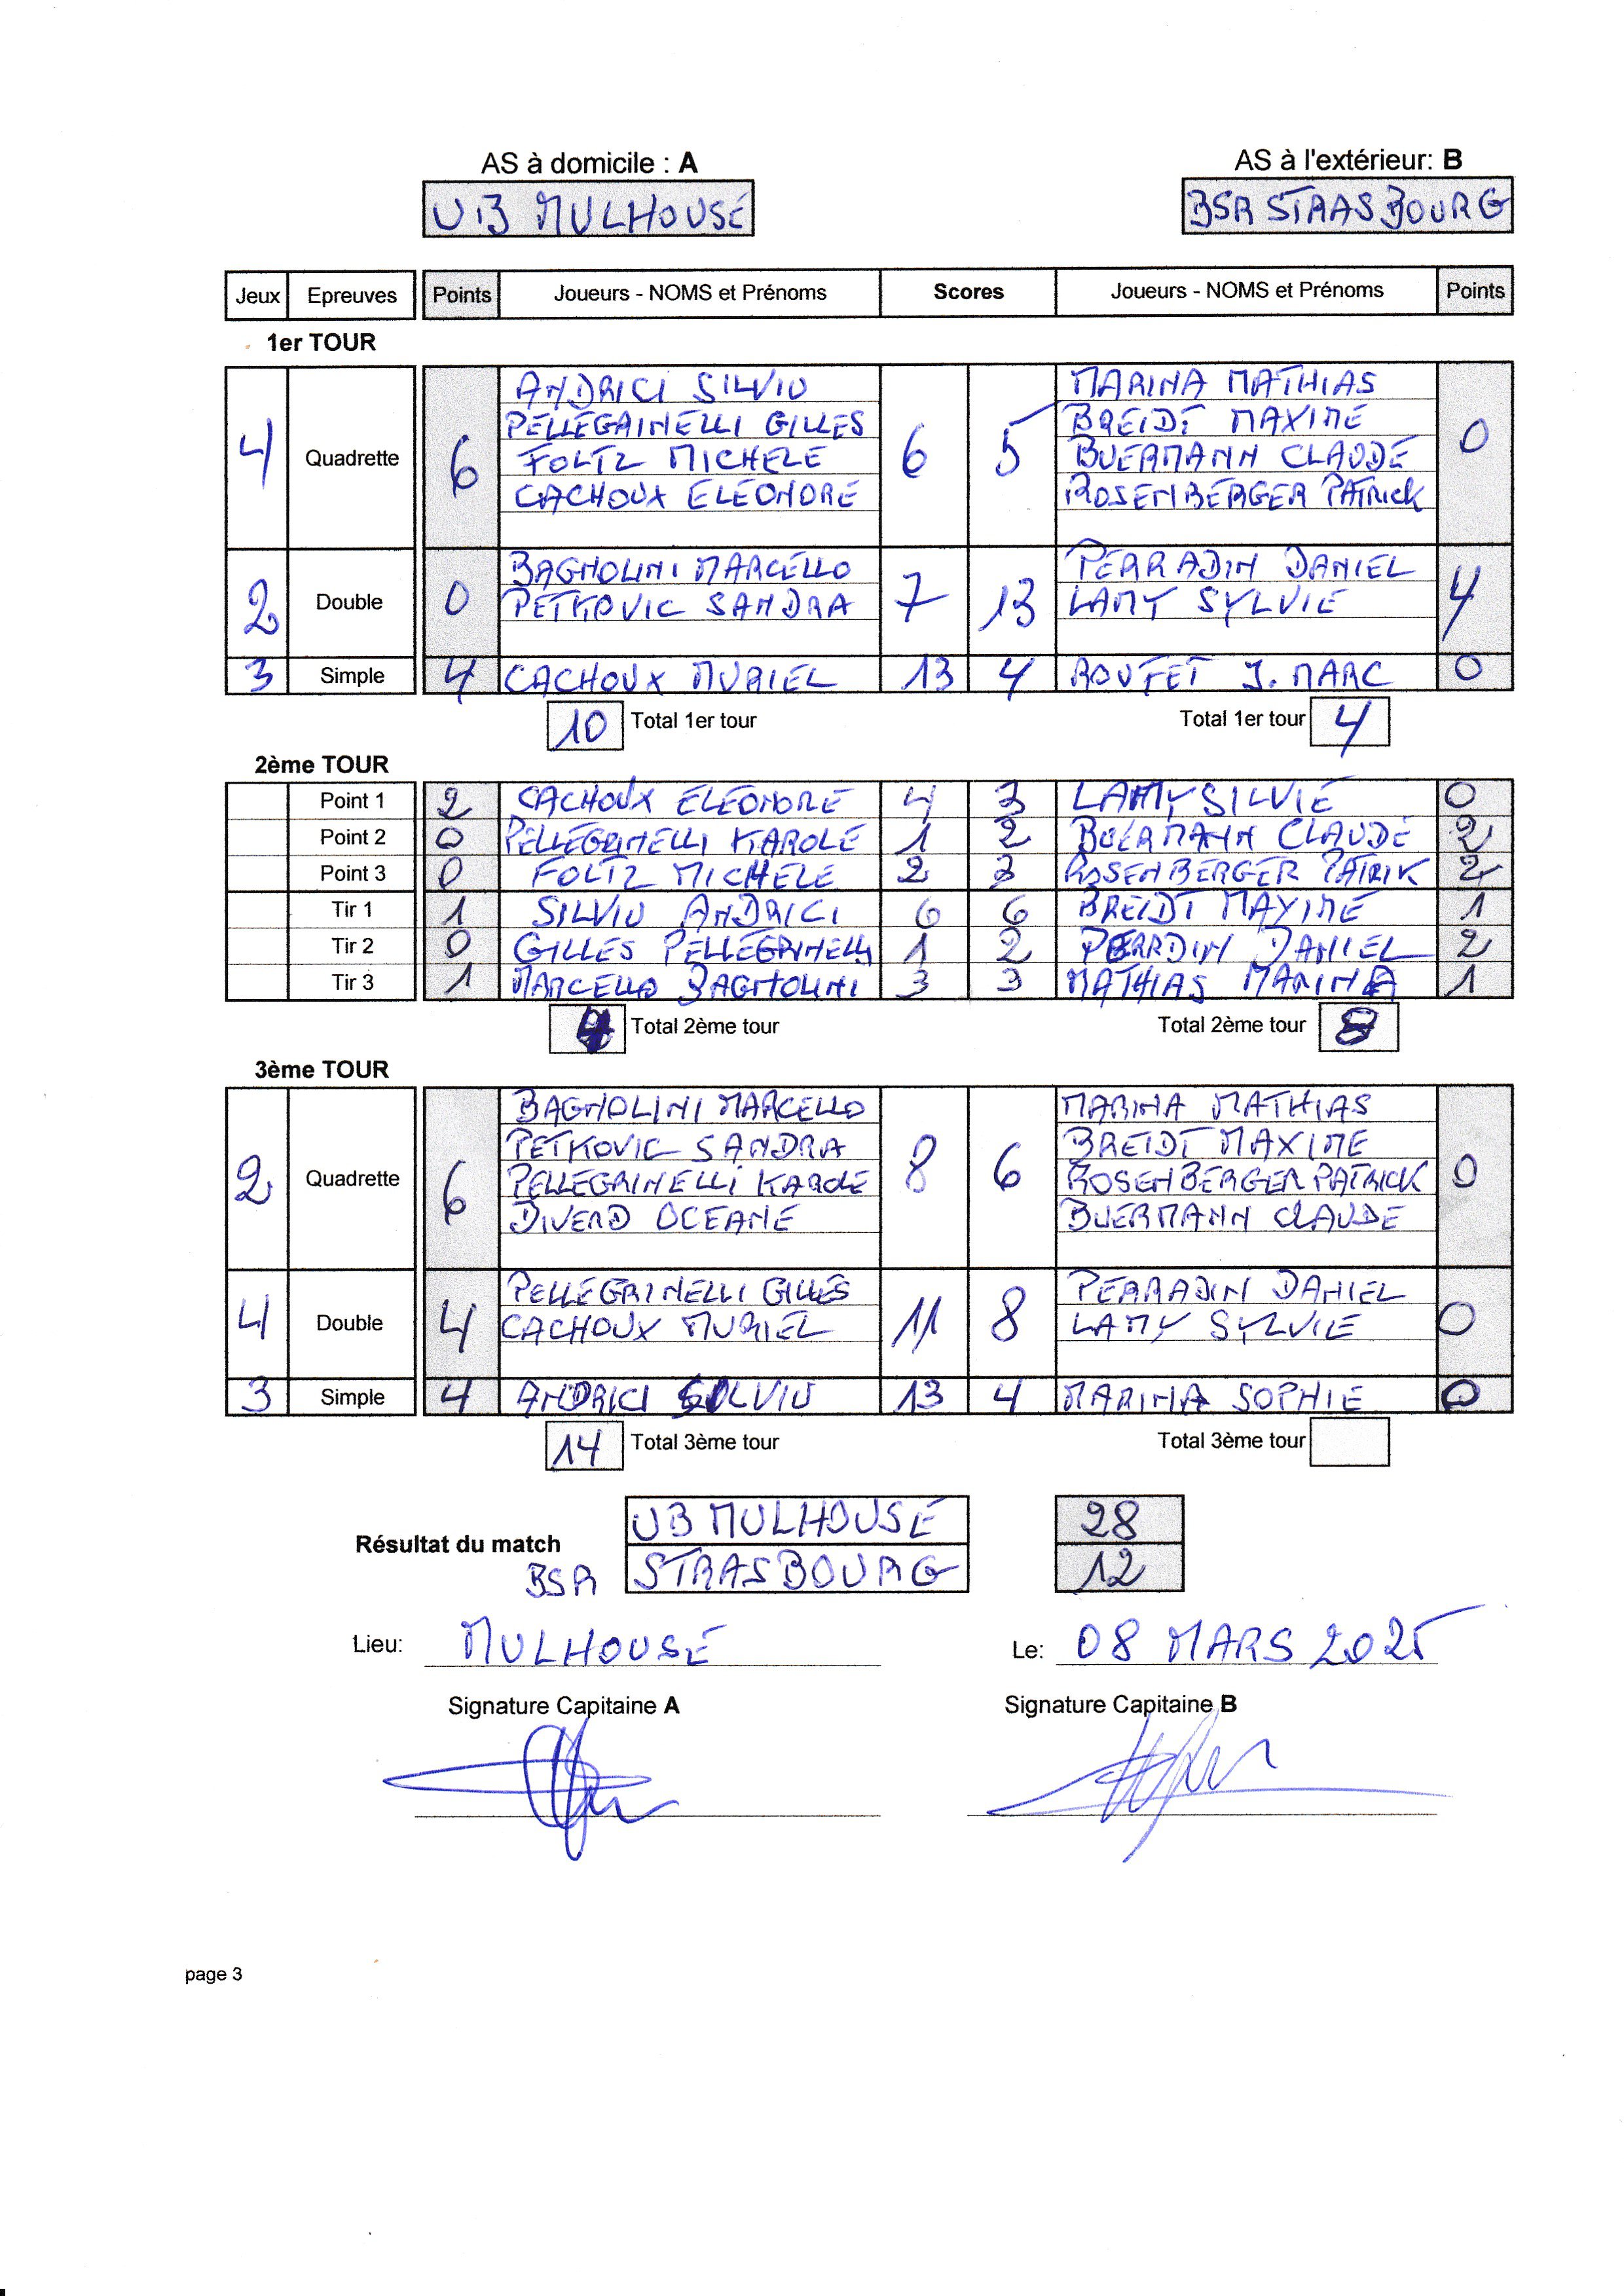 AS à domicile : A AS à l'extérieur: B
UB MULHOUSE BSR STRASBOURG
Jeux Epreuves Points Joueurs - NOMS et Prénoms Scores Joueurs - NOMS et Prénoms Points
1er TOUR
4 Quadrette 6 6 5 0
ANDRICI SILVIU MARINA MATHIAS
PELLEGRINELLI GILLES BREIDT MAXIME
FOLTZ MICHELE BUERMANN CLAUDE
CACHOUX ELEONORE ROSENBERGER PATRICK
2 Double 0 7 13 4
BAGNOLINI MARCELLO PERRADIN DANIEL
PETKOVIC SANDRA LAMY SYLVIE
3 Simple 4 CACHOUX MURIEL 13 4 ROUFFET J. MARC 0
10 Total 1er tour Total 1er tour 4
2ème TOUR
Point 1 2 CACHOUX ELEONORE 4 3 LAMY SILVIE 0
Point 2 0 PELLEGRINELLI KAROLE 1 2 BUERMANN CLAUDE 2
Point 3 0 FOLTZ MICHELE 2 3 ROSENBERGER PATRIK 2
Tir 1 1 SILVIU ANDRICI 6 6 BREIDT MAXIME 1
Tir 2 0 GILLES PELLEGRINELLI 1 2 PERRDIN DANIEL 2
Tir 3 1 MARCELLO BAGNOLINI 3 3 MATHIAS MARINA 1
4 Total 2ème tour Total 2ème tour 8
3ème TOUR
2 Quadrette 6 8 6 0
BAGNOLINI MARCELLO MARINA MATHIAS
PETKOVIC SANDRA BREIDT MAXIME
PELLEGRINELLI KAROLE ROSENBERGER PATRICK
DIVERD OCEANE BUERMANN CLAUDE
4 Double 4 11 8 0
PELLEGRINELLI GILLES PERRADIN DANIEL
CACHOUX MURIEL LAMY SYLVIE
3 Simple 4 ANDRICI SILVIU 13 4 MARINA SOPHIE 0
14 Total 3ème tour Total 3ème tour
Résultat du match UB MULHOUSE 28
BSR STRASBOURG 12
Lieu: MULHOUSE Le: 08 MARS 2025
Signature Capitaine A Signature Capitaine B
page 3